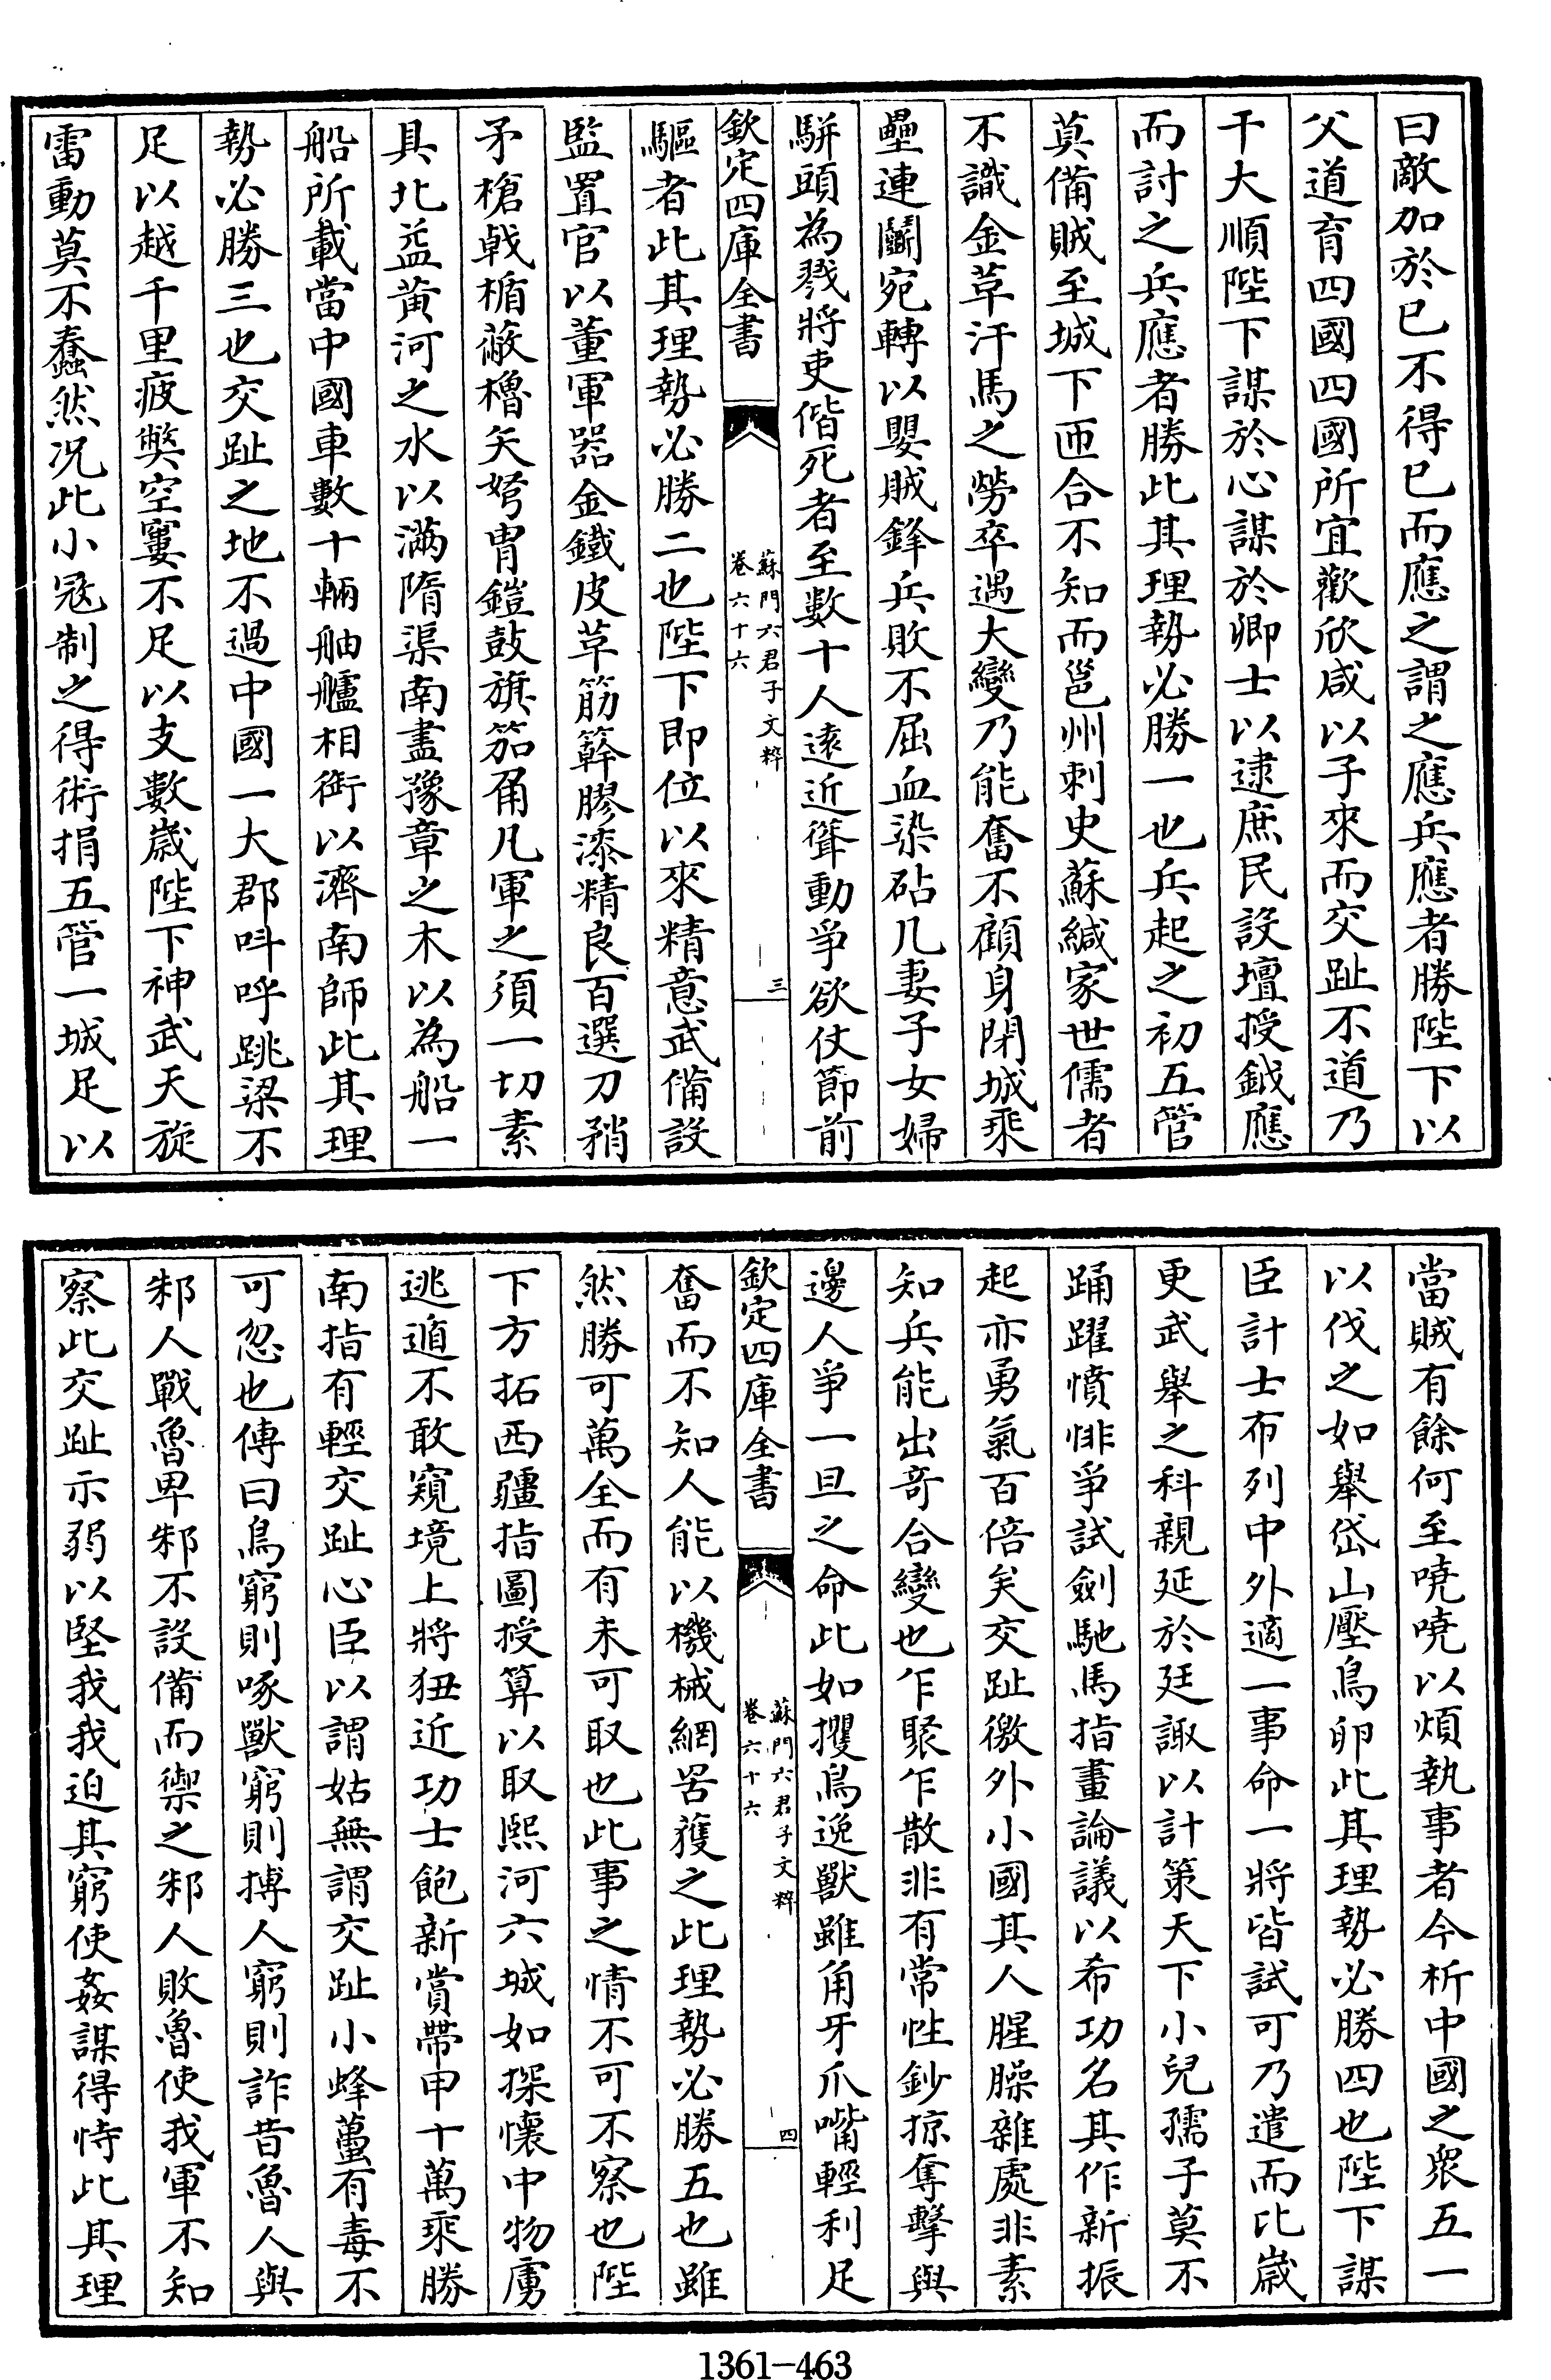 曰敵加於已不得已而應之謂之應兵應者勝陛下以
父道育四國四國所宜歡欣咸以子來而交趾不道乃
干大順陛下謀於心謀於卿士以逮庶民設壇授鉞應
而討之兵應者勝此其理勢必勝一也兵起之初五管
莫備賊至城下匝合不知而邕州刺史蘇緘家世儒者
不識金革汗馬之勞卒遇大變乃能奮不顧身閉城乘
壘連鬭宛轉以嬰賊鋒兵敗不屈血染砧几妻子女婦
駢頭為戮將吏偕死者至數十人遠近聳動爭欲仗節前
欽定四庫全書
蘇門六君子文粹
卷六十六
三
驅者此其理勢必勝二也陛下即位以來精意武備設
監置官以董軍器金鐵皮革筋簳膠漆精良百選刀矟
矛槍戟楯蔽櫓矢弩冑鎧鼓旗笳甬凡軍之須一切素
具北益黃河之水以滿隋渠南盡豫章之木以為船一
船所載當中國車數十輛舳艫相銜以濟南師此其理
勢必勝三也交趾之地不過中國一大郡呌呼跳梁不
足以越千里疲獘空窶不足以支數歲陛下神武天旋
雷動莫不蠢然况此小冦制之得術捐五管一城足以
當賊有餘何至嘵嘵以煩執事者今析中國之衆五一
以伐之如舉岱山壓鳥卵此其理勢必勝四也陛下謀
臣計士布列中外適一事命一將皆試可乃遣而比歲
更武舉之科親延於廷諏以計策天下小兒孺子莫不
踊躍憤悱爭試劍馳馬指畫論議以希功名其作新振
起亦勇氣百倍矣交趾徼外小國其人腥臊雜處非素
知兵能出竒合變也乍聚乍散非有常性鈔掠奪擊與
邊人爭一旦之命此如攫鳥逸獸雖角牙爪嘴輕利足
欽定四庫全書
蘇門六君子文粹
卷六十六
四
奮而不知人能以機械網罟獲之此理勢必勝五也雖
然勝可萬全而有未可取也此事之情不可不察也陛
下方拓西疆指圖授算以取熙河六城如探懷中物虜
逃遁不敢窺境上將狃近功士飽新賞帶甲十萬乘勝
南指有輕交趾心臣以謂姑無謂交趾小蜂蠆有毒不
可忽也傳曰鳥窮則啄獸窮則搏人窮則詐昔魯人與
邾人戰魯卑邾不設備而禦之邾人敗魯使我軍不知
察此交趾示弱以堅我我迫其窮使姦謀得恃此其理
1361-463